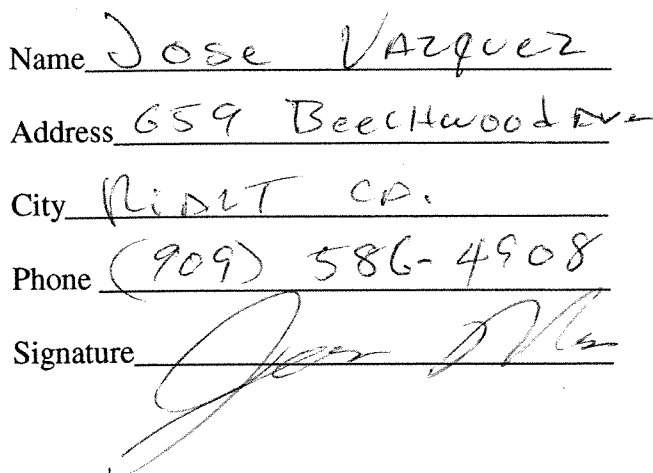 Name Jose Vazquez
Address 659 Beechwood Ave
City CA.
Phone (909) 586-4908
Signature